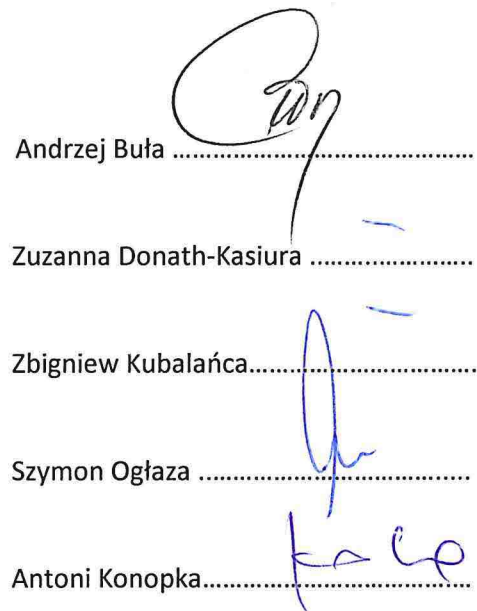 Andrzej Buła ........................................
Zuzanna Donath-Kasiura ......................
Zbigniew Kubalańca...............................
Szymon Ogłaza .....................................
Antoni Konopka.....................................